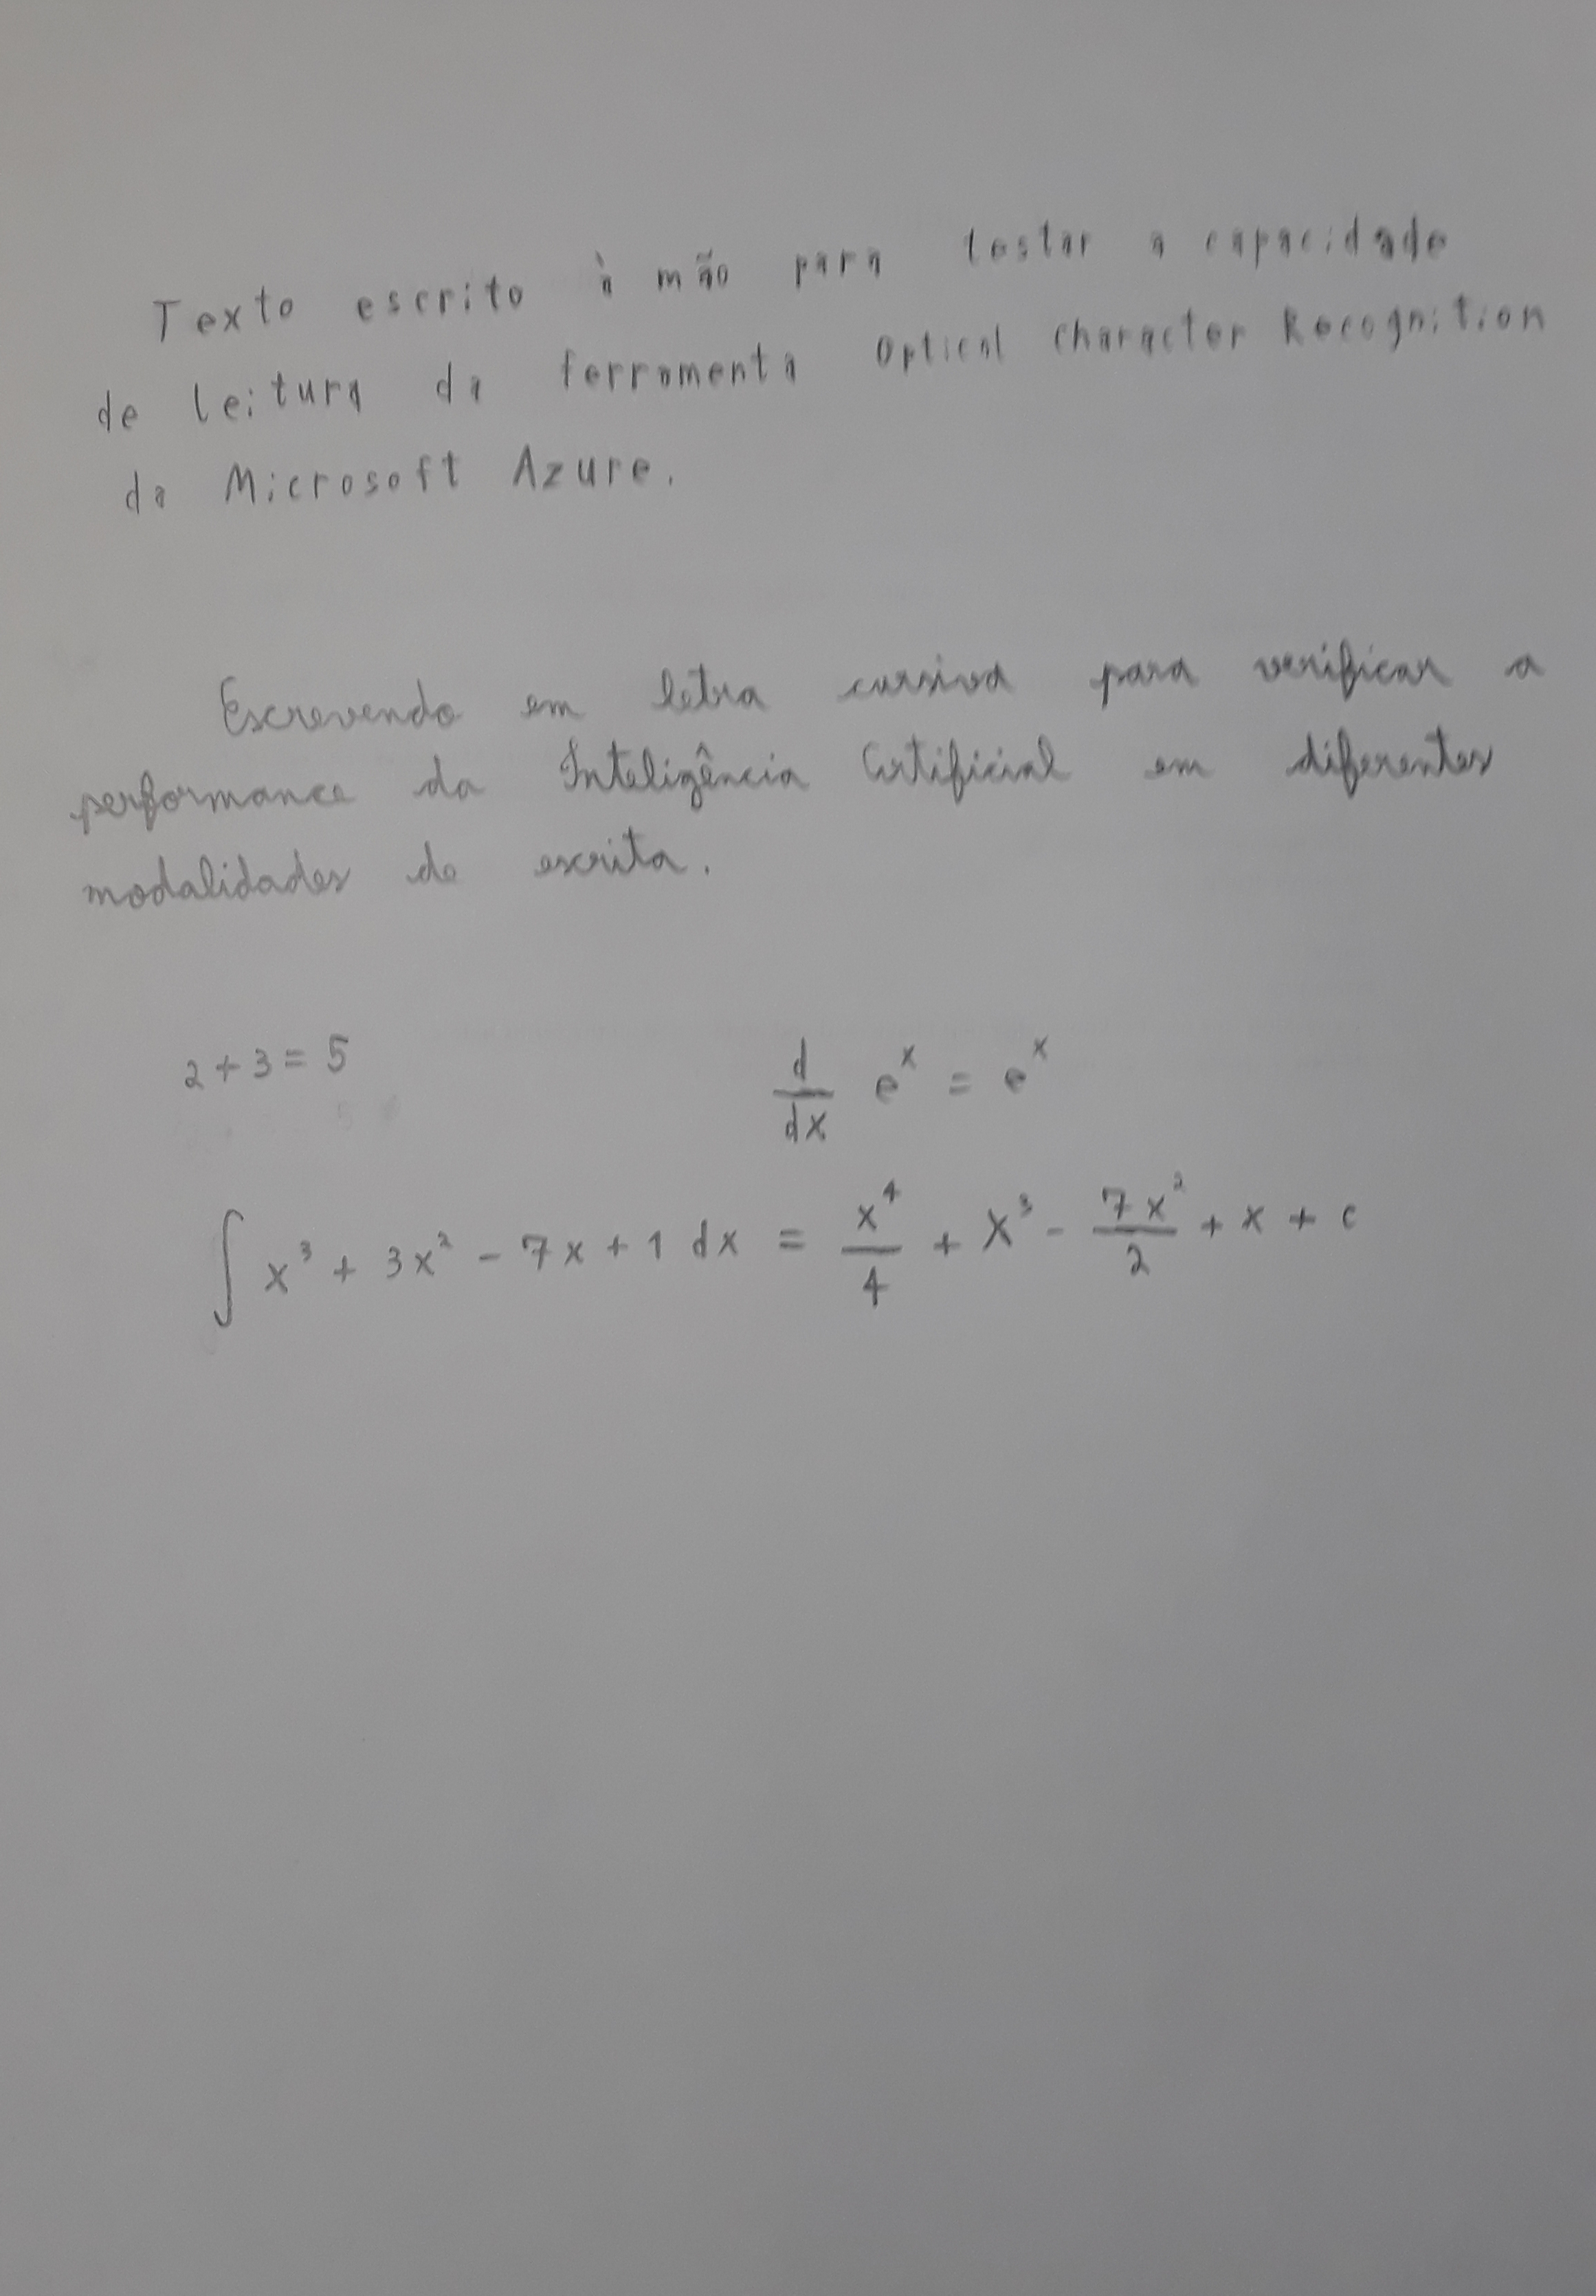 Texto escrito à mão para testar a capacidade
de leitura da ferramenta Optical Character Recognition
da Microsoft Azure.
Escrevendo em letra cursiva para verificar a
performance da Inteligência Artificial em diferentes
modalidades de escrita.
2 + 3 = 5
d/dx e^x = e^x
∫ x³ + 3x² - 7x + 1 dx = x⁴/4 + x³ - 7x²/2 + x + c